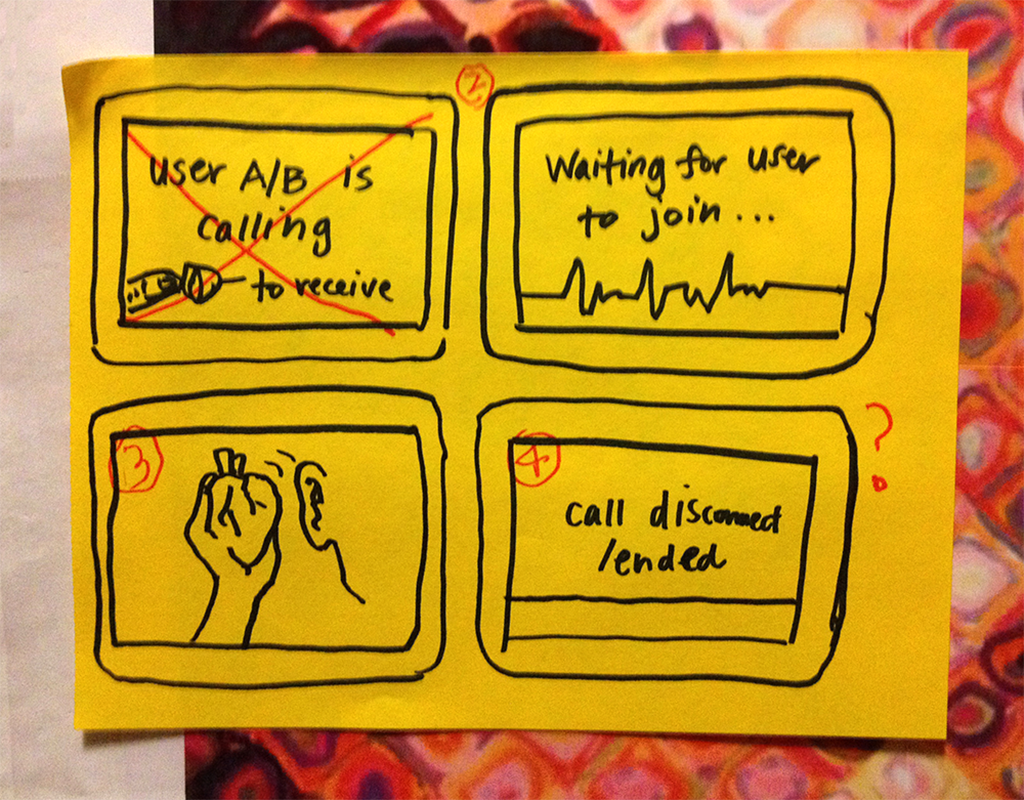 User A/B is
calling
to receive
2
Waiting for user
to join...
3
4
call disconnect
/ended
?